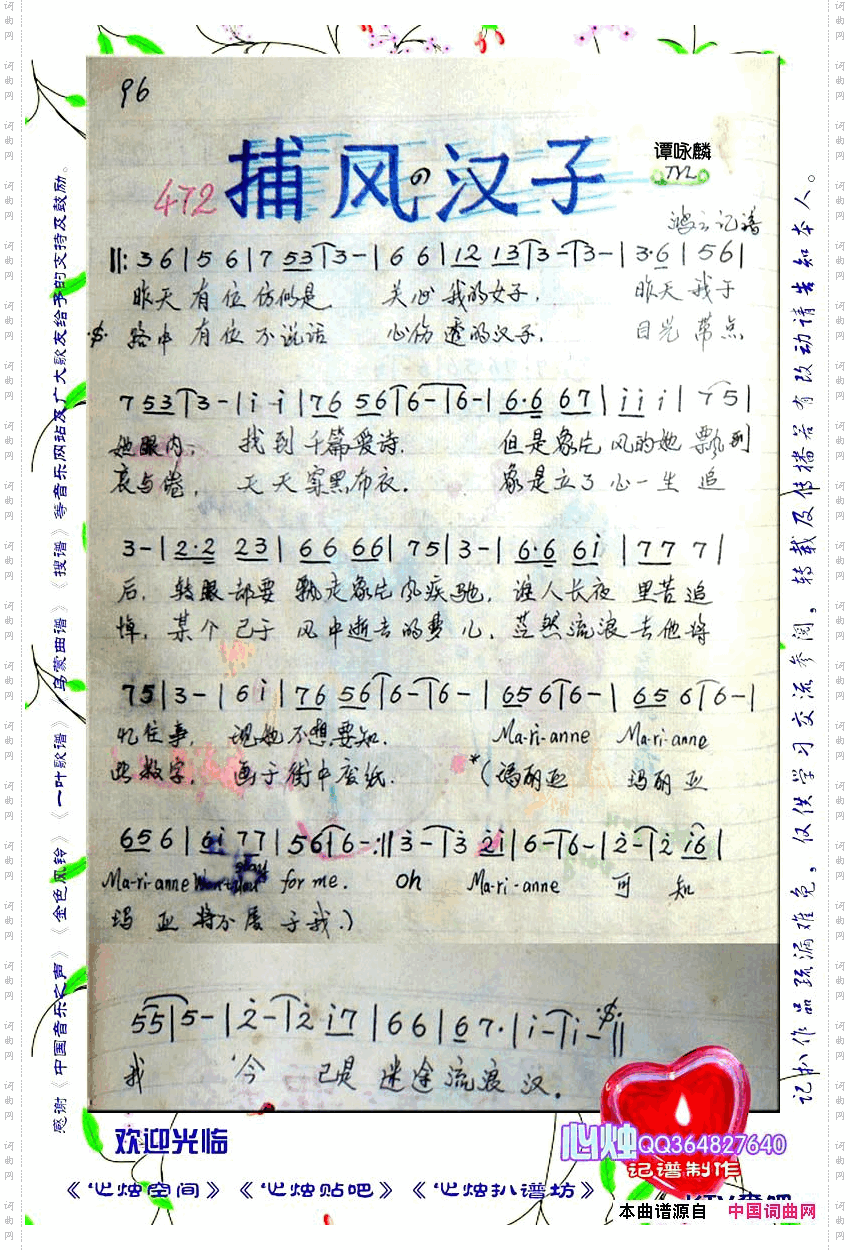 96
捕风の汉子
谭咏麟
472
鸿云记谱
‖: 3 6 | 5 6 | 7 53 | 3 - | 6 6 | 12 13 | 3 - | 3 - | 3·6 | 56 |
昨天 有位 仿似是 关心 我的女子. 昨天 我于
路中 有位 不说话 心伤 透的汉子. 目光 带点
7 53 | 3 - | i· i | 76 56 | 6 - | 6 - | 6·6 67 | i i i | 75 |
她眼内, 找到 千篇爱诗. 但是象片 风的她 飘到
哀与倦, 天天 穿黑布衣. 象是立了 心一生 追
3 - | 2·2 23 | 66 66 | 75 | 3 - | 6·6 6i | 77 7 |
后, 转眼却要 飘走象片风疾驰, 谁人长夜 里苦追
悼, 某个已于 风中逝去的梦儿, 茫然流浪去他将
75 | 3 - | 6 i | 76 56 | 6 - | 6 - | 656 | 6 - | 65 6 | 6 - |
忆往事, 现她不想要知. Ma-ri-anne Ma-ri-anne
些数字, 画于街中废纸. *(玛丽亚 玛丽亚
656 | 6i 77 | 56 | 6 - :‖ 3 - | 3 2i | 6 - | 6 - | 2 - | 2 i6 |
Ma-ri-anne for me. oh Ma-ri-anne 可 知
玛 亚 将不属于我.)
55 | 5 - | 2 - | 2 i7 | 66 | 67· | i - | i - ‖
我 今 已是 迷途流浪汉.
感谢《中国音乐之声》《金色风铃》《一叶歌谱》《乌蒙曲谱》《搜谱》等音乐网站及广大歌友给予的支持及鼓励。
记扒作品疏漏难免，仅供学习交流参阅，转载及传播若有改动请告知本人。
欢迎光临
心烛QQ364827640
记谱制作
《心烛空间》《心烛贴吧》《心烛扒谱坊》
本曲谱源自 中国词曲网
词曲网